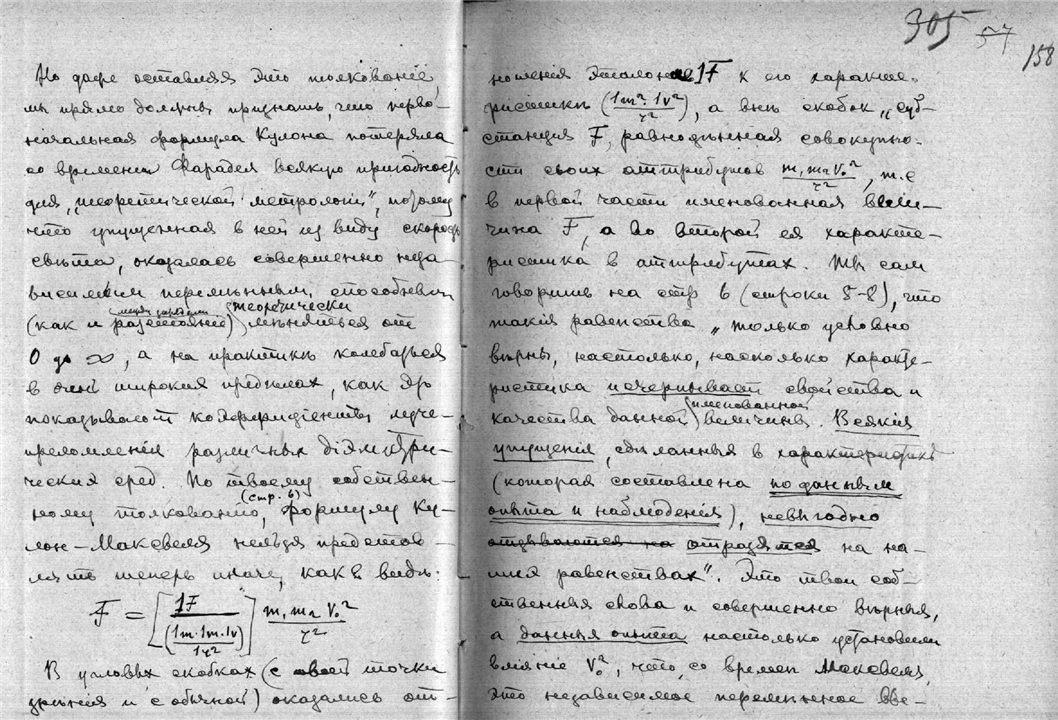 Но даже оставляя это толкованіе,
мы прямо должны признать, что перво-
начальная формула Кулона потеряла
со времени Фарадея всякую пригодность
для „теоретической метрологіи", потому
что упущенная в ней из виду скорость
свѣта, оказалась совершенно неза-
висимым перемѣнным, способным
(как и разстояніе) теоретически мѣняться от
0 до ∞, а на практикѣ колебаться
в очень широких предѣлах, как это
показывают коэффиціенты луче-
преломленія различных діэлектри-
ческих сред. По твоему собствен-
ному толкованію (стр. 6), формулу Ку-
лон-Максвеля нельзя представ-
лять теперь иначе, как в видѣ:
F = [1F / (1m·1m·1v / 1r²)] m₁ m₂ V₀² / r²
В угловых скобках (с твоей точки
зрѣнія и с обычной) оказалось от-
305 57
158
ношенія эталоннаго 1F к его характе-
ристикѣ (1m²·1v² / r²), а внѣ скобок „суб-
станция F, равноцѣнная совокупно-
сти своих аттрибутов m₁ m₂ V₀² / r², т.е
в первой части именованная вели-
чина F, а во второй ея характе-
ристика в аттрибутах. Ты сам
говоришь на стр 6 (строки 5-8), что
такія равенства „только условно
вѣрны, настолько, насколько характе-
ристика исчерпывает свойства и
качества данной именованной величины. Всякія
упущения, сдѣланныя в характеристикѣ
(которая составлена по данным
опыта и наблюденія), невыгодно
отзываются на отразятся на на-
ших равенствах". Это твои соб-
ственныя слова и совершенно вѣрныя,
а данныя опыта настолько установили
вліяніе V₀², что со времен Максвеля,
это независимое переменное вве-